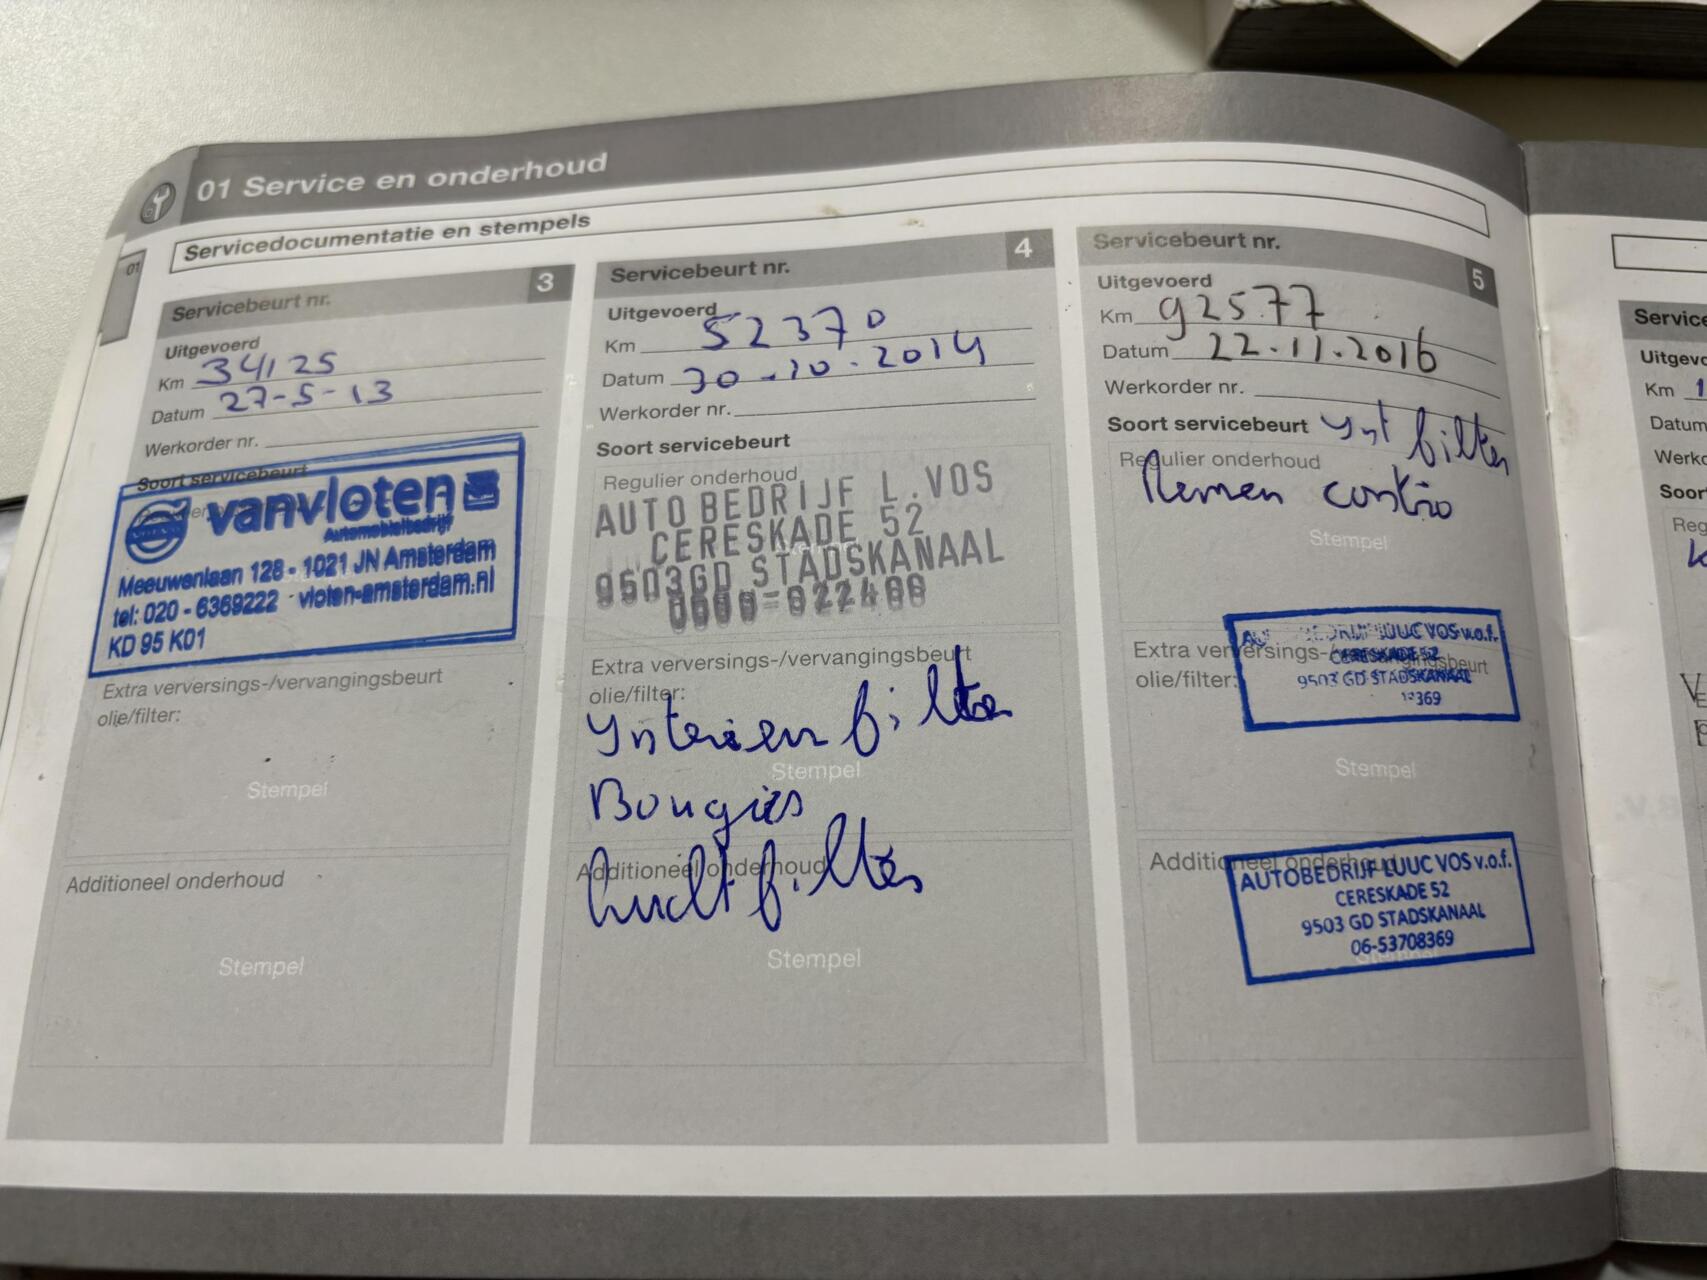 01 Service en onderhoud
Servicedocumentatie en stempels
01
Servicebeurt nr. 3
Uitgevoerd
Km 34125
Datum 27-5-13
Werkorder nr.
Soort servicebeurt
vanvloten
Automobielbedrijf
Meeuwenlaan 128 - 1021 JN Amsterdam
tel: 020 - 6369222 vloten-amsterdam.nl
KD 95 K01
Extra verversings-/vervangingsbeurt
olie/filter:
Stempel
Additioneel onderhoud
Stempel
Servicebeurt nr. 4
Uitgevoerd
Km 52370
Datum 30-10-2014
Werkorder nr.
Soort servicebeurt
Regulier onderhoud
AUTO BEDRIJF L.VOS
CERESKADE 52
9503GD STADSKANAAL
Extra verversings-/vervangingsbeurt
olie/filter:
Ynterieur filter
Stempel
Bougies
Additioneel onderhoud
Lucht filter
Stempel
Servicebeurt nr. 5
Uitgevoerd
Km 92577
Datum 22.11.2016
Werkorder nr.
Soort servicebeurt Ynt filter
Regulier onderhoud
Remen contro
Stempel
LUUC VOS v.o.f.
Extra verversings-/vervangingsbeurt
CERESKADE 52
olie/filter:
9503 GD STADSKANAAL
369
Stempel
Additioneel onderhoud
AUTOBEDRIJF LUUC VOS v.o.f.
CERESKADE 52
9503 GD STADSKANAAL
06-53708369
Stempel
Service
Uitgevo
Km 1
Datum
Werko
Soort
Reg